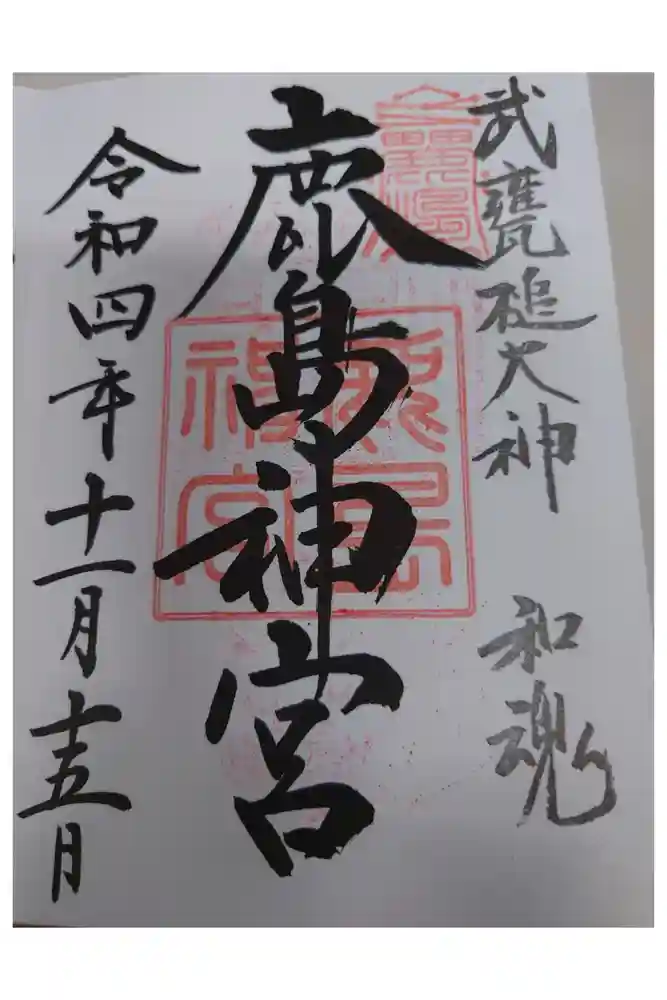 武甕槌大神 和魂
鹿島神宮
鹿島
神宮
令和四年十一月十五日